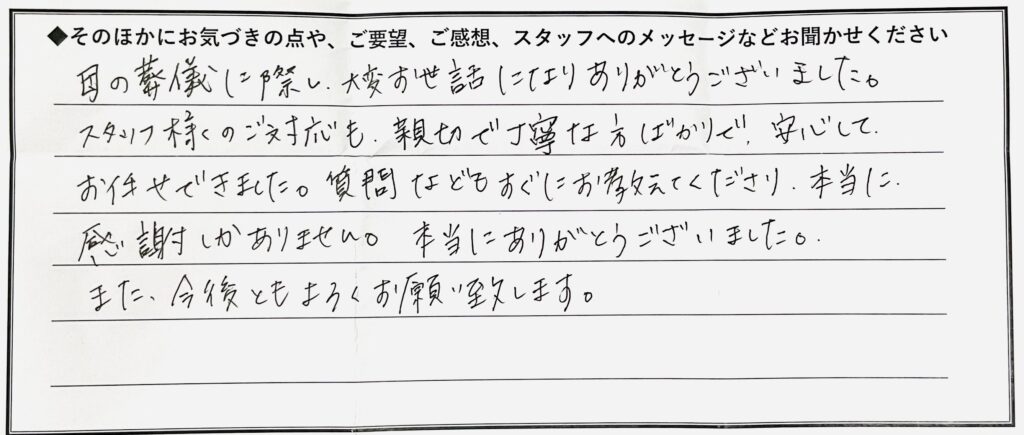 ◆そのほかにお気づきの点や、ご要望、ご感想、スタッフへのメッセージなどお聞かせください
母の葬儀に際し、大変お世話になりありがとうございました。
スタッフ様々のご対応も、親切で丁寧な方ばかりで、安心して
お任せできました。質問などもすぐにお教えてくださり、本当に
感謝しかありません。本当にありがとうございました。
また、今後ともよろくお願い致します。